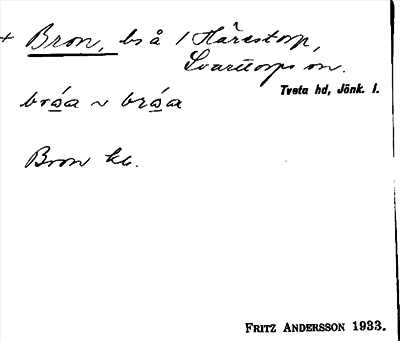 + Bron, bs å / Hårestorp,
Svarttorps sn.
Tveta hd, Jönk. l.
Bron kb.
FRITZ ANDERSSON 1933.